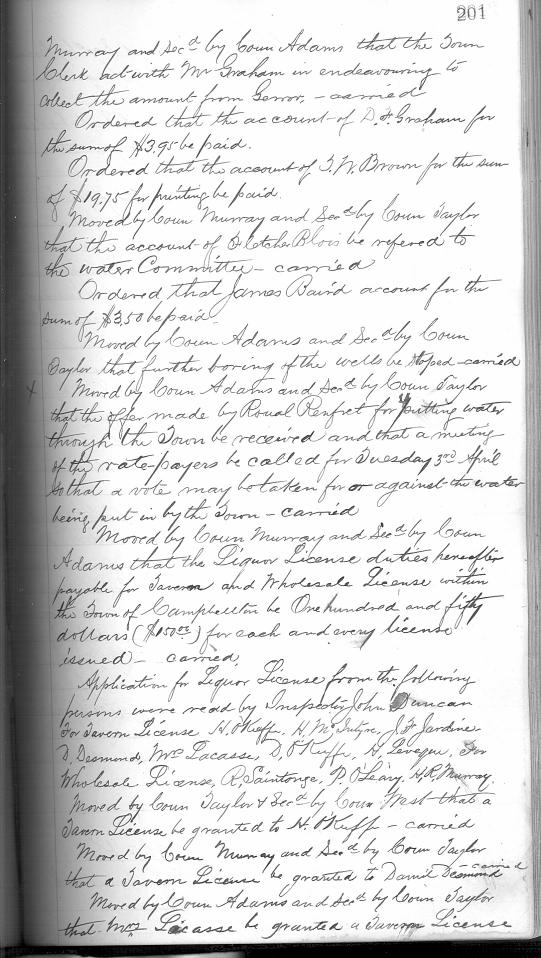 201
Murray and Secd by Coun Adams that the Town
Clerk act with Mr Graham in endeavouring to
collect the amount from Gerror, - carried
Ordered that the account of D. F. Graham for
the sum of $3.95 be paid.
Ordered that the account of T. W. Brown for the sum
of $19.75 for printing be paid.
Moved by Coun Murray and Secd by Coun Taylor
that the account of Fletcher Blois be refered to
the water Committee - carried
Ordered that James Baird account for the
sum of $3.50 be paid -
Moved by Coun Adams and Secd by Coun
Taylor that further boring of the wells be stoped - carried
x Moved by Coun Adams and Secd by Coun Taylor
that the offer made by Roual Renfret for putting water
through the Town be received and that a meeting
of the rate-payers be called for Tuesday 3rd April
so that a vote may be taken for or against the water
being put in by the Town - carried
Moved by Coun Murray and Secd by Coun
Adams that the Liquor License duties hereafter
payable for Tavern and Wholesale License within
the Town of Campbellton be One hundred and fifty
dollars ($150.00) for each and every license
issued - carried
Application for Liquor License from the following
persons were read by Inspector John Duncan
For Tavern License H. O'Keeffe, H. McIntyre, J. F. Jardine
D. Desmond, Mrs Lacasse, D. O'Keeffe, H. Leveque, For
Wholesale License, R. Saintonge, P. O'Leary, H. R. Murray.
Moved by Coun Taylor & Secd by Coun West that a
Tavern License be granted to H. O'Keeffe - carried
Moved by Coun Murray and Secd by Coun Taylor
that a Tavern License be granted to Daniel Desmond - carried
Moved by Coun Adams and Secd by Coun Taylor
that Mrs Lacasse be granted a Tavern License